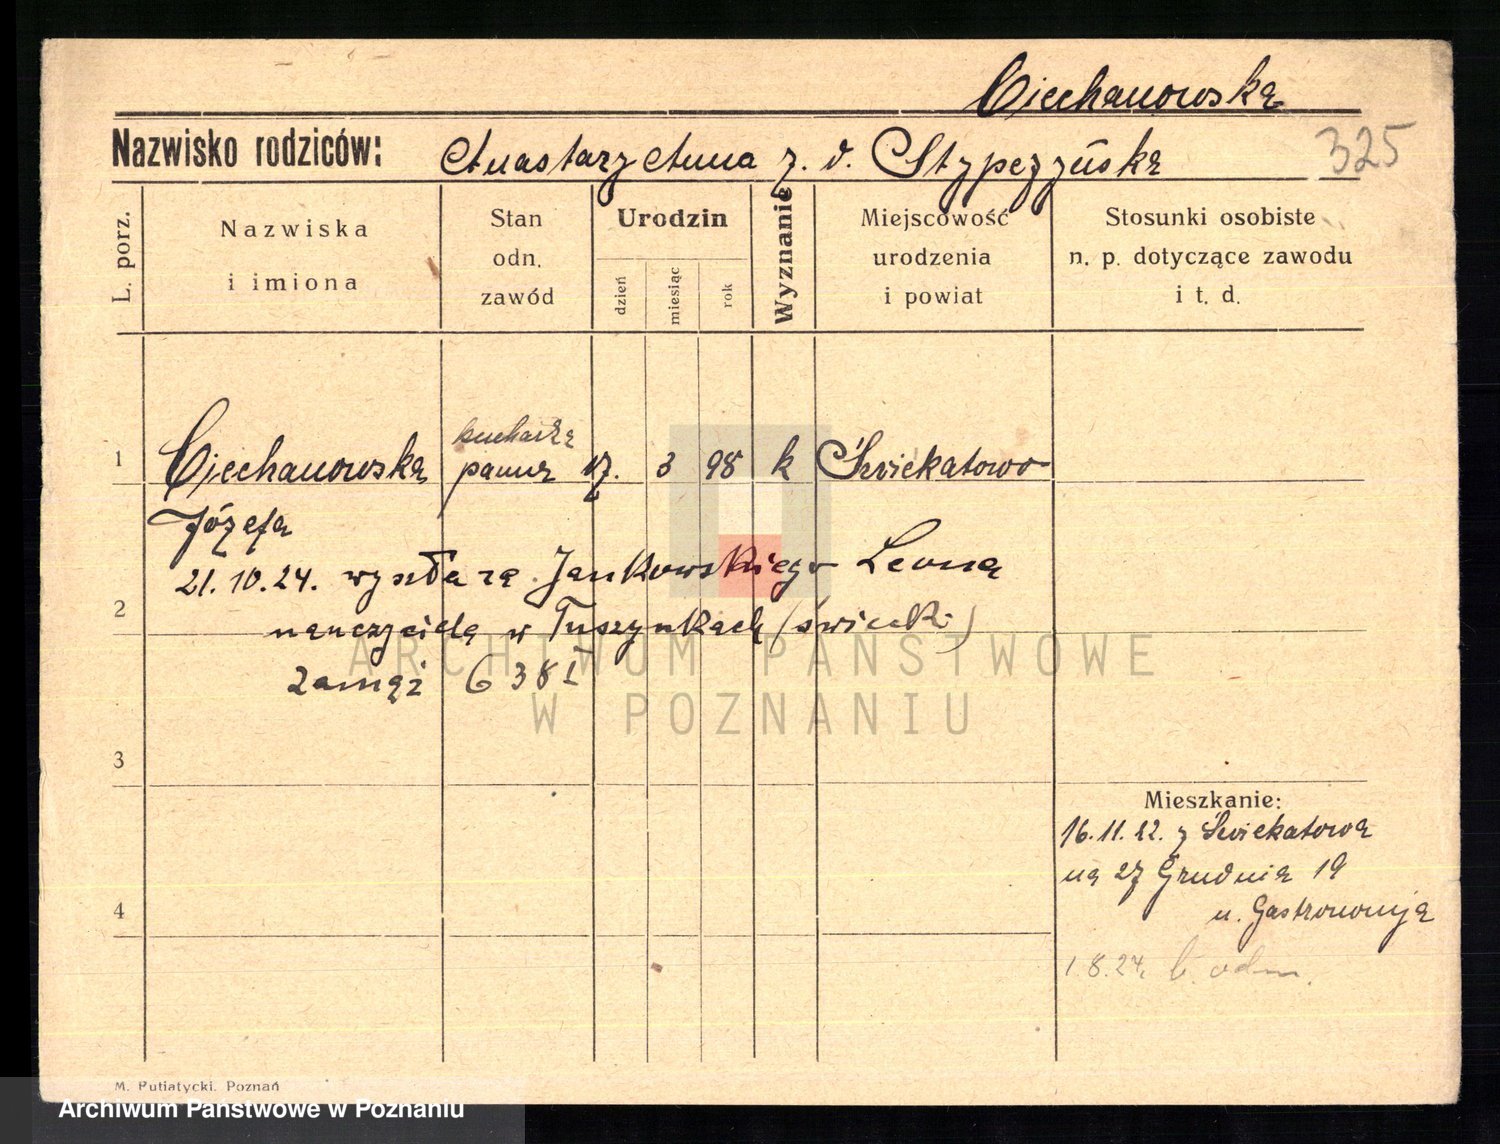 Ciechanowska
Nazwisko rodziców: Anastazy Anna z. d. Stypczyńska 325
L. porz.
Nazwiska
i imiona
Stan
odn.
zawód
Urodzin
dzień
miesiąc
rok
Wyznanie
Miejscowość
urodzenia
i powiat
Stosunki osobiste
n. p. dotyczące zawodu
i t. d.
kucharka
1 Ciechanowska panna 17. 3 98 k Świekatowo
Józefa
21.10.24. wyszła za Jankowskiego Leona
2
nauczyciela w Tuszynkach (świeck.)
zamąż 638 I
3
Mieszkanie:
16.11.22. z Świekatowa
na 27 Grudnia 19
4
u. Gastronomja
1.8.24. b. odm.
M. Putiatycki. Poznań
ARCHIWUM PAŃSTWOWE
W POZNANIU
Archiwum Państwowe w Poznaniu